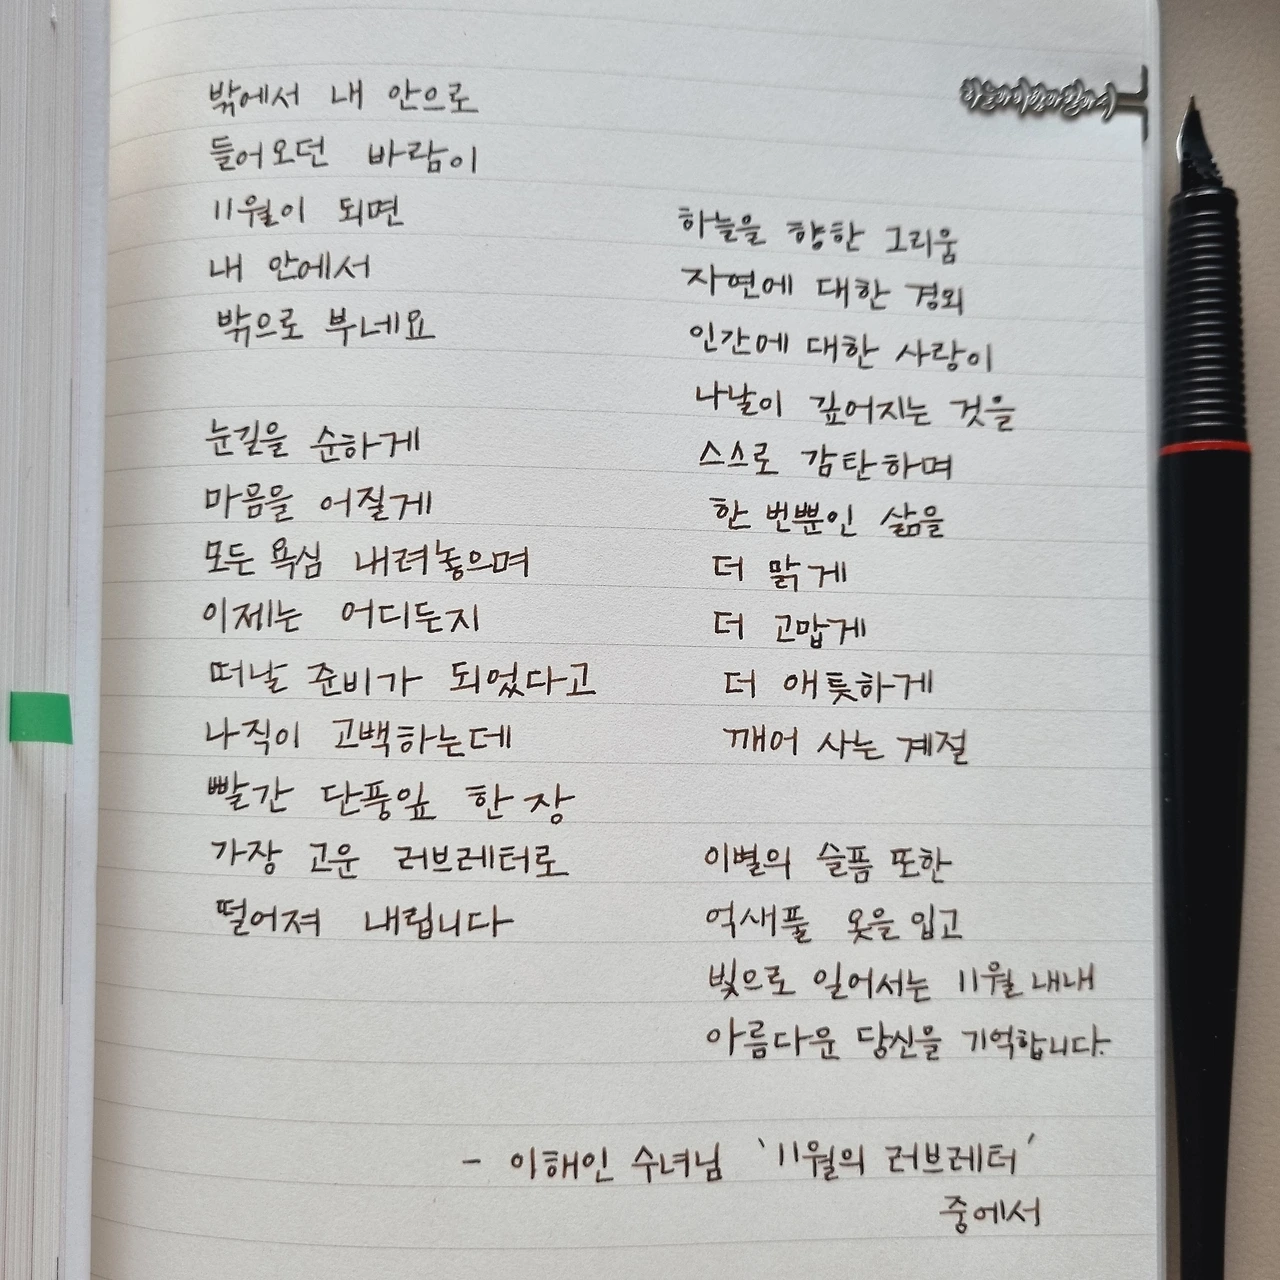 밖에서 내 안으로
들어오던 바람이
11월이 되면
내 안에서
밖으로 부네요
눈길을 순하게
마음을 어질게
모든 욕심 내려놓으며
이제는 어디든지
떠날 준비가 되었다고
나직이 고백하는데
빨간 단풍잎 한 장
가장 고운 러브레터로
떨어져 내립니다
하늘을 향한 그리움
자연에 대한 경외
인간에 대한 사랑이
나날이 깊어지는 것을
스스로 감탄하며
한 번뿐인 삶을
더 맑게
더 고맙게
더 애틋하게
깨어 사는 계절
이별의 슬픔 또한
억새풀 옷을 입고
빛으로 일어서는 11월 내내
아름다운 당신을 기억합니다.
- 이해인 수녀님 '11월의 러브레터'
중에서